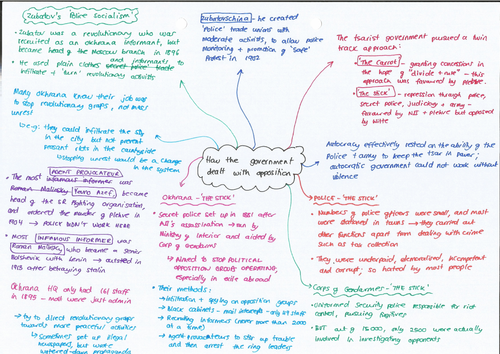 Zubatov's Police Socialism
Zubatov was a revolutionary who was
recruited as an okhrana informant, but
became head of the Moscow branch in 1896
He used plain clothes secret police and informants to
infiltrate + 'turn' revolutionary activists
Many okhrana knew their job was
to stop revolutionary groups, not mass
unrest
e.g. they could infiltrate the SRs
in the city but not prevent
peasant riots in the countryside
stopping unrest would be a change
in the system
AGENT PROVOCATEUR
The most infamous informer was
Roman Malinsky Yevno Azef, became
head of the SR fighting organisation,
and ordered the murder of Plehve in
1904 → POLICE DIDN'T WORK HERE
Most INFAMOUS INFORMER was
Roman Malinsky, who became a senior
Bolshevik with Lenin → ousted in
1913 after betraying Stalin
Okhrana HQ only had 161 staff
in 1895 - most were just admin
→ try to direct revolutionary groups
towards more peaceful activities
Sometimes set up illegal
newspapers, but were
watered-down propaganda
Zubatovschina - he created
'Police' trade unions with
moderate activists, to allow police
monitoring + promotion of 'safe'
protest in 1902
How the government
dealt with opposition
Okhrana - 'THE STICK'
Secret police set up in 1881 after
AII's assassination → run by
Ministry of Interior and aided by
Corp of Gendarmes
Aimed to STOP POLITICAL
OPPOSITION GROUPS OPERATING,
especially in exile abroad
Their methods:
Infiltration + spying on opposition groups
Black cabinets - mail intercepts - only 49 staff
Recruiting informers (never more than 2000
at a time)
Agent provocateurs to stir up trouble
and then arrest the ring leaders
The tsarist government pursued a twin
track approach:
The Carrot - granting concession in
the hope of "divide + rule" - this
approach was favoured by
The Stick - repression through police,
secret police, judiciary + army -
favoured by NII + Plehve but opposed
by Witte
Autocracy effectively rested on the ability of the
Police + army to keep the tsar in power;
autocratic government could not work without
violence
POLICE - 'THE STICK'
Numbers of police officers were small, and most
were stationed in towns → they carried out
other functions apart from dealing with crime
such as tax collection
They were underpaid, demoralised, incompetent
and corrupt; so hated by most people
Corps of Gendarmes - 'THE STICK'
Uniformed security police responsible for riot
control, pursuing fugitives
BUT out of 15000, only 2500 were actually
involved in investigating opponents